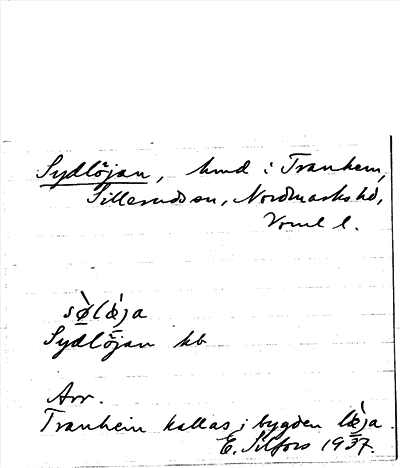 Sydlöjan, hmd i Tranhem,
Sillerud sn, Nordmarks hd,
Vrml l.
sø̀(l)æ̀ja
Sydlöjan kb
Anr.
Tranhem kallas i bygden læ̀ja.
E. Silfors 1937.